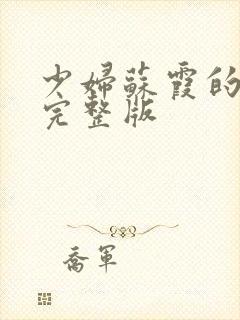 少婦蘇霞的
完整版
喬軍